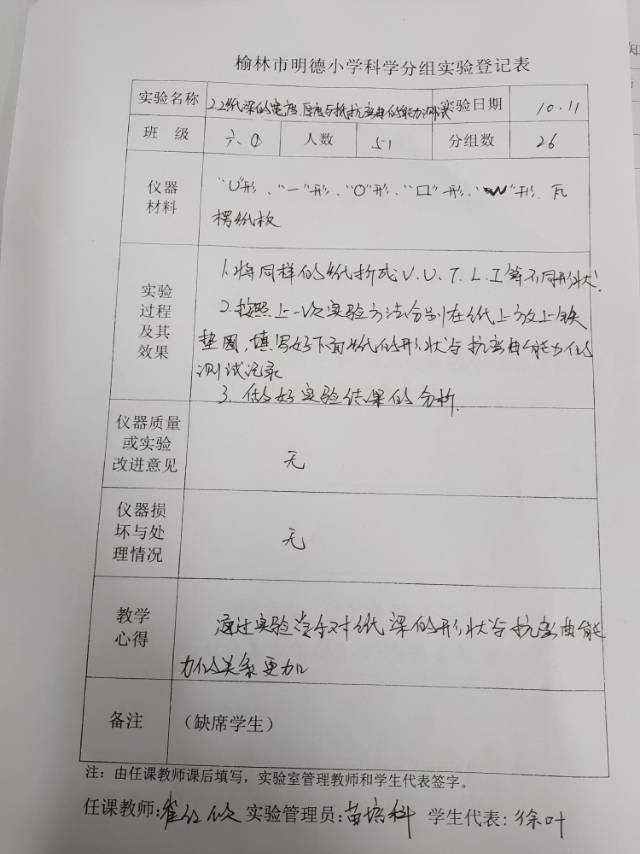 榆林市明德小学科学分组实验登记表
实验名称 2.2纸梁的宽度厚度与抵抗弯曲的能力测试 实验日期 10.11
班 级 六.① 人数 51 分组数 26
仪器材料 “U”形、“一”形、“O”形、“口”形、“W”形、瓦
楞纸板
实验过程及其效果 1.将同样的纸折成V.U.T.L.I等不同形状.
2.按照上一次实验方法分别在纸上放上铁
垫圈,填写好下面纸的形状与抗弯曲能力的
测试记录
3.做好实验结果的分析.
仪器质量或实验改进意见 无
仪器损坏与处理情况 无
教学心得 通过实验学生对纸梁的形状与抗弯曲能
力的关系更加
备注 (缺席学生)
注:由任课教师课后填写,实验室管理教师和学生代表签字。
任课教师: 实验管理员:苗培科 学生代表:徐叶